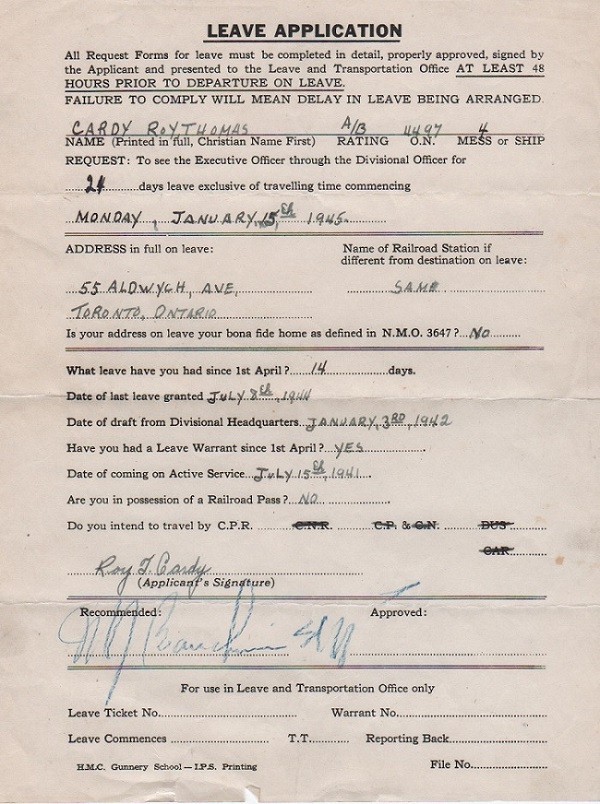 LEAVE APPLICATION
All Request Forms for leave must be completed in detail, properly approved, signed by
the Applicant and presented to the Leave and Transportation Office AT LEAST 48
HOURS PRIOR TO DEPARTURE ON LEAVE.
FAILURE TO COMPLY WILL MEAN DELAY IN LEAVE BEING ARRANGED.
CARDY ROY THOMAS A/B 4497 4
NAME (Printed in full, Christian Name First) RATING O.N. MESS or SHIP
REQUEST: To see the Executive Officer through the Divisional Officer for
......21..........days leave exclusive of travelling time commencing
MONDAY, JANUARY, 15th, 1945.
ADDRESS in full on leave: Name of Railroad Station if
different from destination on leave:
55 ALDWYCH, AVE, SAME
TORONTO, ONTARIO
Is your address on leave your bona fide home as defined in N.M.O. 3647? NO
What leave have you had since 1st April? 14 days.
Date of last leave granted JULY 8th, 1944
Date of draft from Divisional Headquarters JANUARY, 3RD, 1942
Have you had a Leave Warrant since 1st April? YES
Date of coming on Active Service JULY 15th, 1941
Are you in possession of a Railroad Pass? NO
Do you intend to travel by C.P.R. C.N.R. C.P. & C.N. BUS
CAR
Roy T. Cardy
(Applicant's Signature)
Recommended: Approved:
For use in Leave and Transportation Office only
Leave Ticket No. Warrant No.
Leave Commences T.T. Reporting Back
H.M.C. Gunnery School — I.P.S. Printing File No.